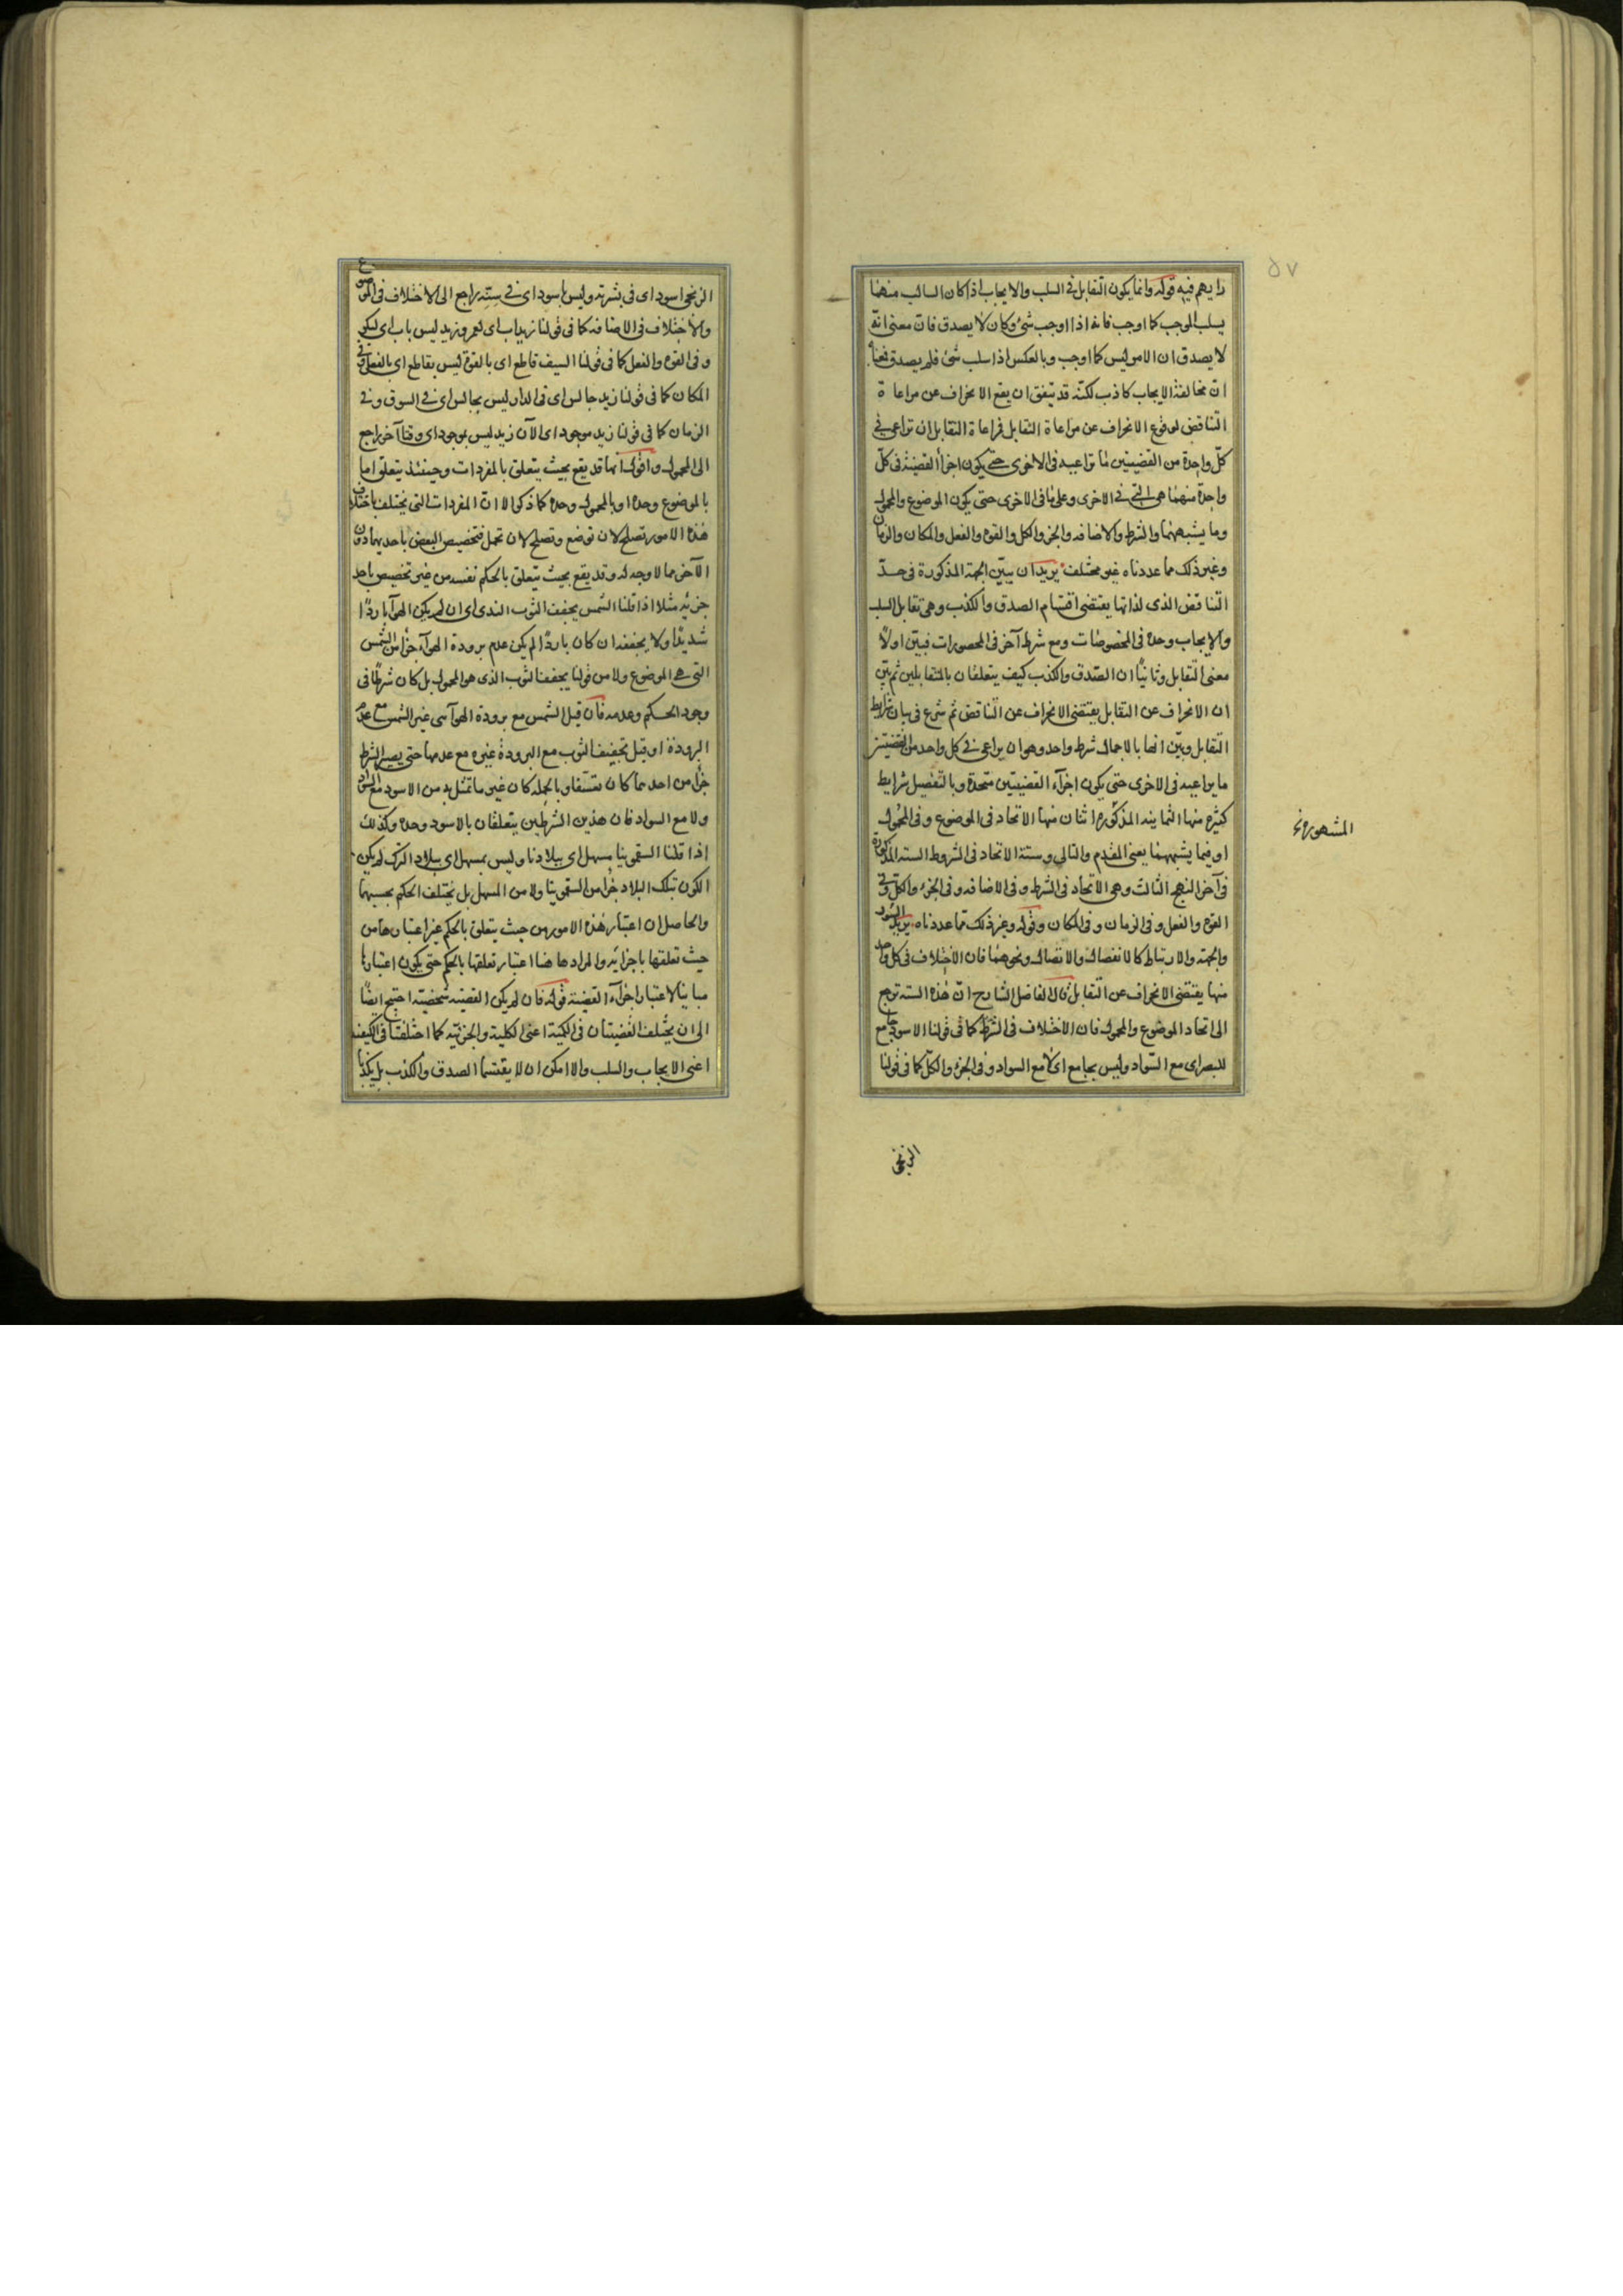 ٥٧
رايهم فيه قوله وانما يكون التقابل فى السلب والايجاب اذا كان السالب منهما
يسلب الموجب كما اوجب فانه اذا اوجب شئ وكان لا يصدق فان معنى انه
لا يصدق ان الامر ليس كما اوجب وبالعكس اذا سلب شئ فلم يصدق فمعناه
ان مخالفة الايجاب كاذب لكنه قد يتفق ان يقع الانحراف عن مراعاة
التناقض لوقوع الانحراف عن مراعاة التقابل فمراعاة التقابل ان تراعى فى
كل واحدة من القضيتين ما تراعيه فى الاخرى حتى يكون اجزأ القضية فى كل
واحدة منهما هى التى فى الاخرى وعلى ما فى الاخرى حتى يكون الموضوع والمحمول
وما يشبههما والشرط والاضافه والجزو الكل والقوه والفعل والمكان والزمان
وغير ذلك مما عددناه غير مختلف يريد ان يبين الجهة المذكورة فى حد
التناقض الذى لذاتها يقتضى اقتسام الصدق والكذب وهى تقابل السلب
والايجاب وحده فى المخصوصات ومع شرط آخر فى المحصورات فبين اولاً
معنى التقابل وثانياً ان الصدق والكذب كيف يتعلقان بالمتقابلين ثم بين
ان الانحراف عن التقابل يقتضى الانحراف عن التناقض ثم شرع فى بيان شرايط
التقابل وبين انها بالاجمال شرط واحد وهو ان يراعى فى كل واحد من القضيتين
ما يراعيه فى الاخرى حتى يكون اجزآء القضيتين متحدة وبالتفصيل شرايط
كثيره منها الثمانيه المذكوره اثنان منها الاتحاد فى الموضوع وفى المحمول
المشهوره
او فيما يشبههما يعنى المقدم والتالى وستة الاتحاد فى الشروط السته المذكورة
فى آخر النهج الثالث وهى الاتحاد فى الشرط وفى الاضافه وفى الجزء والكل وفى
القوه والفعل وفى الزمان وفى المكان وقوله وغير ذلك مما عددناه يريد السور
والجهة والارتباط كالانفصال والاتصال ونحوهما فان الاختلاف فى كل واحد
منها يقتضى الانحراف عن التقابل قال الفاضل الشارح ان هذه السته ترجع
الى اتحاد الموضوع والمحمول فان الاختلاف فى الشرط كما فى قولنا الاسود جامع
للبصر اى مع السواد وليس بجامع اى لا مع السواد وفى الجزء والكل كما فى قولنا
الزنجى
الزنجى اسود اى فى بشرته وليس باسود اى فى سنه راجع الى الاختلاف فى الموضوع
والاختلاف فى الاضافه كما فى قولنا زيد اب اى لعمرو وزيد ليس باب اى لبكر
وفى القوه والفعل كما فى قولنا السيف قاطع اى بالقوة ليس بقاطع اى بالفعل وفى
المكان كما فى قولنا زيد جالس اى فى الدار ليس بجالس اى فى السوق وفى
الزمان كما فى قولنا زيد موجود اى الآن زيد ليس بموجود اى وقتا آخر راجع
الى المحمول واقول انها قد يقع بحيث يتعلق بالمفردات وحينئذ يتعلق اما
بالموضوع وحده او بالمحمول وحده كما ذكر الا ان المفردات التى يختلف باختلاف
هذه الامور تصلح لان توضع وتصلح لان تحمل فتخصيص البعض باحديهما دون
الآخر مما لا وجه له وقد يقع بحيث يتعلق بالحكم نفسه من غير تخصيص باحد
جزئيه مثلا اذا قلنا الشمس يجفف الثوب الندى اى ان لم يكن الهوآ باردًا
شديدًا ولا يجففه ان كان باردًا لم يكن عدم برودة الهوآء جزأ من الشمس
التى هى الموضوع ولا من قولنا يجفف الثوب الذى هو المحمول بل كان شرطًا فى
وجود الحكم وعدمه فان قيل الشمس مع برودة الهوآ شى غير الشمس مع عدم
البرودة او قيل تجفيف الثوب مع البرودة غيره مع عدمها حتى يصير الشرط
جزأ من احدهما كان تعسفا وبالجمله كان غير ما تمثل به من الاسود مع السواد
ولا مع السواد فان هذين الشرطين يتعلقان بالاسود وحده وكذلك
اذا قلنا السقمونيا مسهل اى ببلادنا وليس بمسهل اى ببلاد الترك لم يكن
الكون بتلك البلاد جزأ من السقمونيا ولا من المسهل بل يختلف الحكم بحسبهما
والحاصل ان اعتبار هذه الامور من حيث يتعلق بالحكم غير اعتبارها من
حيث تعلقها باجزائه والمراد هاهنا اعتبار تعلقها بالحكم حتى يكون اعتبارها
مباينا لاعتبار اجزآء القضية قوله فان لم يكن القضيه شخصيه احتيج ايضاً
الى ان يختلف القضيتان فى الكمية اعنى الكلية والجزئيه كما اختلفتا فى الكيفيه
اعنى الايجاب والسلب والا امكن ان لا يقتسما الصدق والكذب بل يكذبا